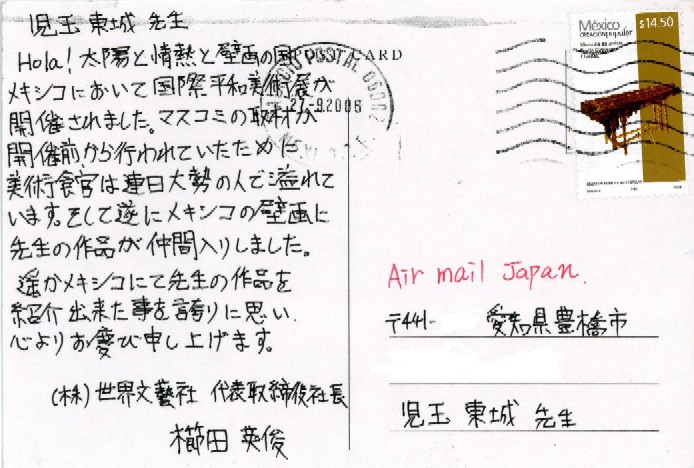 児玉 東城 先生
Hola! 太陽と情熱と壁画の国
メキシコにおいて国際平和美術展が
開催されました。マスコミの取材が
開催前から行われていたために
美術館は連日大勢の人で溢れて
います。そして遂にメキシコの壁画に
先生の作品が仲間入りしました。
遥かメキシコにて先生の作品を
紹介出来た事を誇りに思い、
心よりお慶び申し上げます。
(株)世界文藝社 代表取締役社長
櫛田 英俊
POST CARD
POSTAL 06002
27-9.2006
México
CREACIÓN popular
$14.50
Air mail Japan.
〒441- 愛知県豊橋市
児玉 東城 先生